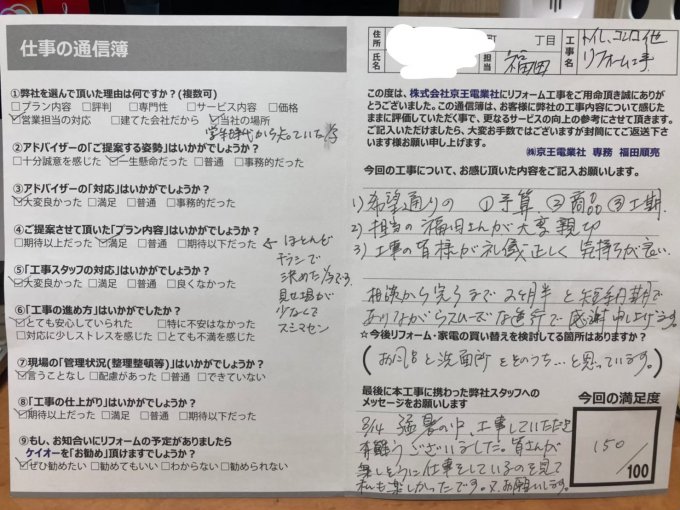 仕事の通信簿
①弊社を選んで頂いた理由は何ですか?(複数可)
□プラン内容 □評判 □専門性 □サービス内容 □価格
☑営業担当の対応 □建てた会社だから ☑当社の場所
学生時代から知っていた
②アドバイザーの「ご提案する姿勢」はいかがでしょうか?
□十分誠意を感じた ☑一生懸命だった □普通 □事務的だった
③アドバイザーの「対応」はいかがでしょうか?
☑大変良かった □満足 □普通 □事務的だった
④ご提案させて頂いた「プラン内容」はいかがでしょうか?
□期待以上だった ☑満足 □普通 □期待以下だった
←ほとんど
チラシで
決めた
見せ場が
少なくて
スミマセン
⑤「工事スタッフの対応」はいかがでしょうか?
☑大変良かった □満足 □普通 □良くなかった
⑥「工事の進め方」はいかがでしたか?
☑とても安心していられた □特に不安はなかった
□対応に少しストレスを感じた □とても不満を感じた
⑦現場の「管理状況(整理整頓等)」はいかがでしょうか?
☑言うことなし □配慮があった □普通 □できていない
⑧「工事の仕上がり」はいかがでしょうか?
☑期待以上だった □満足 □普通 □期待以下だった
⑨もし、お知合いにリフォームの予定がありましたら
ケイオーを「お勧め」頂けますでしょうか?
☑ぜひ勧めたい □勧めてもいい □わからない □勧められない
住所
町 丁目
氏名
福田
工事名
トイレ、コンロ他
リフォーム工事
この度は、株式会社京王電業社にリフォーム工事をご用命頂き誠にありが
とうございました。この通信簿は、お客様に弊社の工事内容について感じた
ままに評価していただく事で、更なるサービスの向上の参考にさせて頂きます。
ご記入いただけましたら、大変お手数ではございますが封筒にてご返送下さ
います様お願い申し上げます。
㈱京王電業社 専務 福田順亮
今回の工事について、お感じ頂いた内容をご記入お願いします。
1)希望通りの ①予算 ②商品 ③工期
2)担当の福田さんが大変親切
3)工事の皆様が礼儀正しく気持ちが良い。
相談から完了まで2ヶ月半と短期間で
ありながらスムーズな進行で感謝申し上げます。
☆今後リフォーム・家電の買い替えを検討してる箇所はありますか?
(お風呂と洗面所をそのうち…と思っています。)
最後に本工事に携わった弊社スタッフへの
メッセージをお願いします
8/14 猛暑の中、工事していただき
有難うございました。皆さんが
楽しそうに仕事をしているのを見て
私も楽しかったです。又、お願いします。
今回の満足度
150
/100